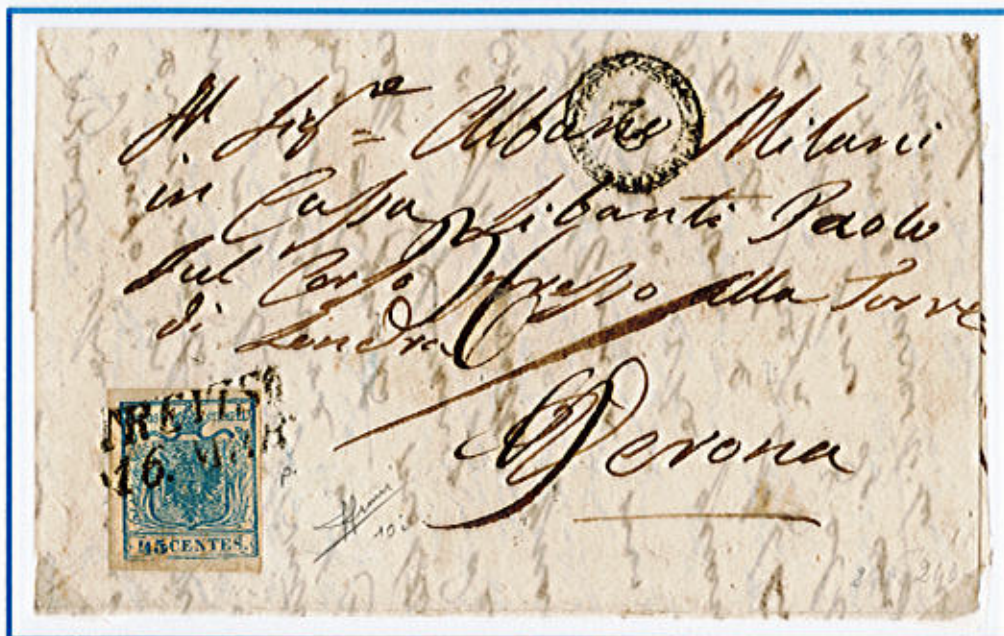 Al Sigre = Albano Milani
in Cassa Libanti Paolo
sul Corso presso alla Torre
di Londra
Verona
2
TREVISO
16. MAR
45 CENTES.